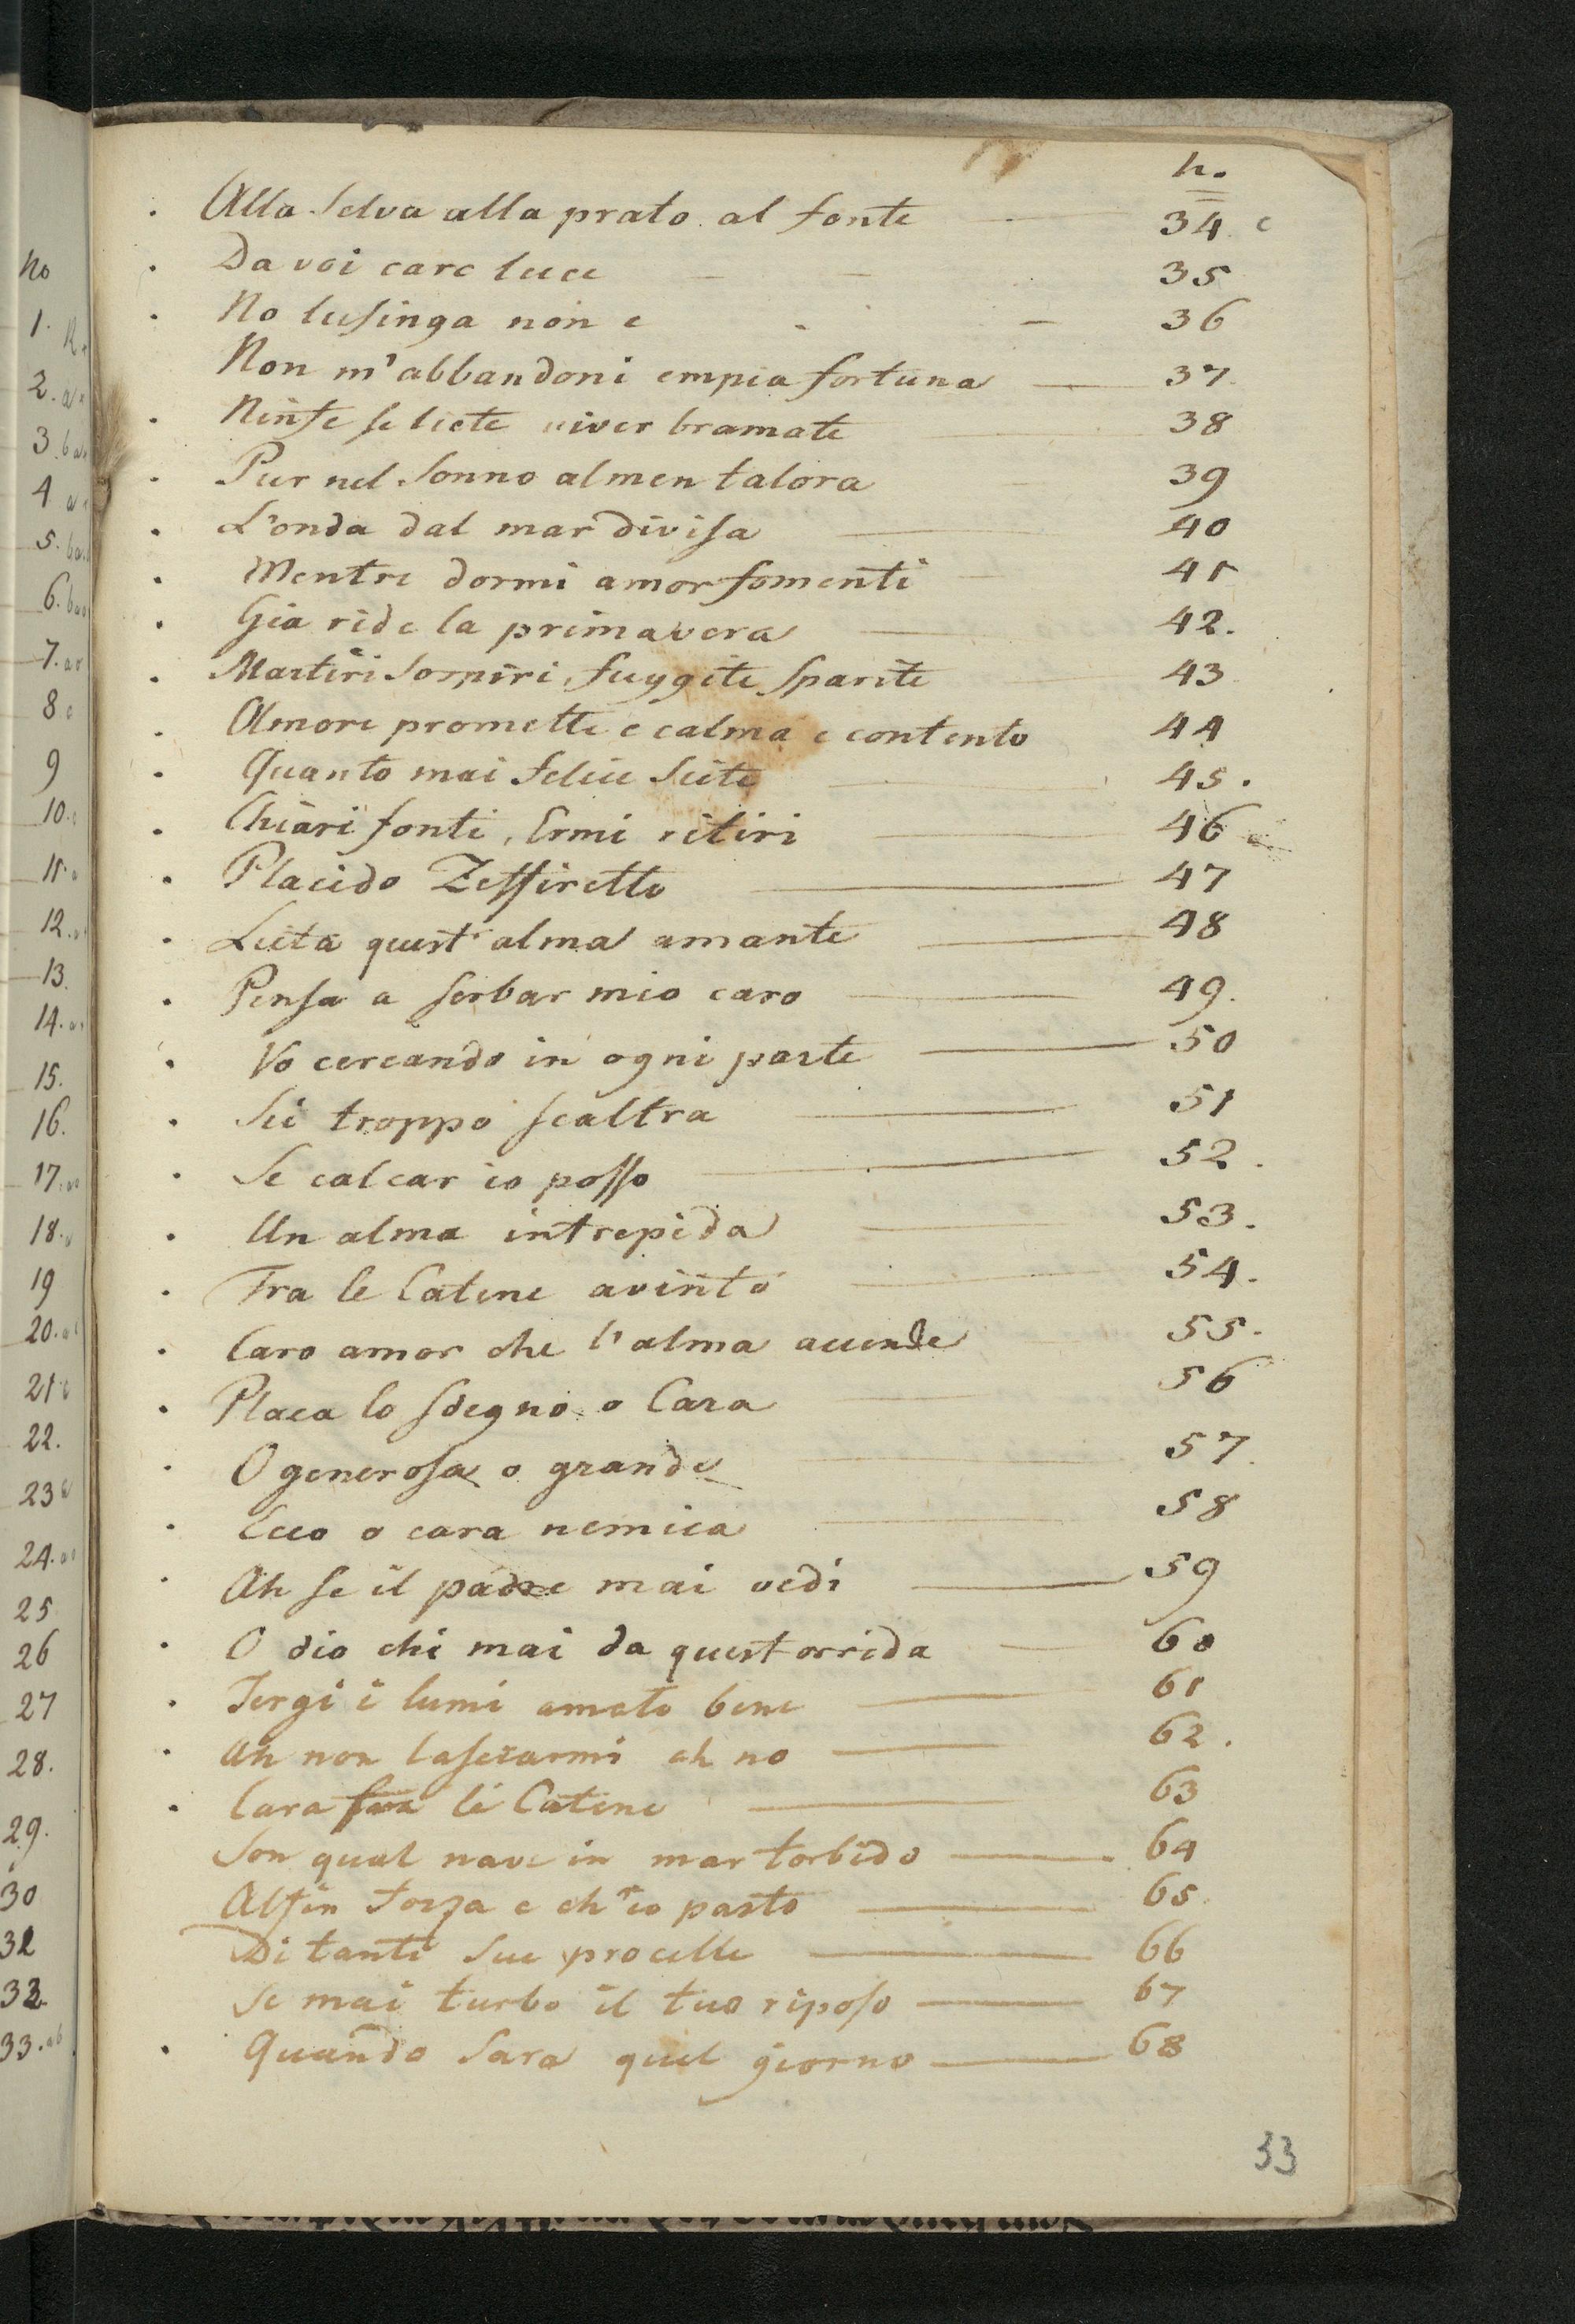 n.
Alla Selva alla prato al fonte - 34. c
Da voi care luce - - 35
No lusinga non e - - 36
Non m'abbandoni empia fortuna — 37.
Ninfe se liete viver bramate 38
Pur nel Sonno almen talora 39
L'onda dal mar divisa — 40
Mentre dormi amor fomenti 41
Gia ride la primavera — 42.
Martiri Sospiri, fuggite Sparite 43
Amore promette e calma e contento 44
Quanto mai felice Seite — 45.
Chiari fonti, Ermi ritiri — 46
Placido Zeffiretto — 47
Lieta quest'alma amante — 48
Pensa a serbar mio caro — 49.
Vo cercando in ogni parte — 50
Sei troppo scaltra — 51
Se calcar io posso — 52.
Un alma intrepida — 53.
Tra le Catene avinto — 54.
Caro amor che l'alma accende 55.
Placa lo sdegno o Cara — 56
O generosa o grande — 57.
Ecco o cara nemica — 58
Ah se il padre mai vedi — 59
O dio chi mai da quest orrida — 60
Tergi i lumi amato bene — 61
Ah non lasciarmi ah no — 62.
Cara le Catene — 63
Son qual nave in mar torbido — 64
Alfin forza e ch'io parto — 65.
Di tante sue procelle — 66
Se mai turbo il tuo riposo — 67
Quando Sara quel giorno — 68
33
no
1.
2.
3.
4
5.
6.
7.
8
9
10.
11.
12.
13.
14.
15.
16.
17.
18.
19
20.
21
22.
23
24.
25
26
27
28.
29.
30
31
32.
33.